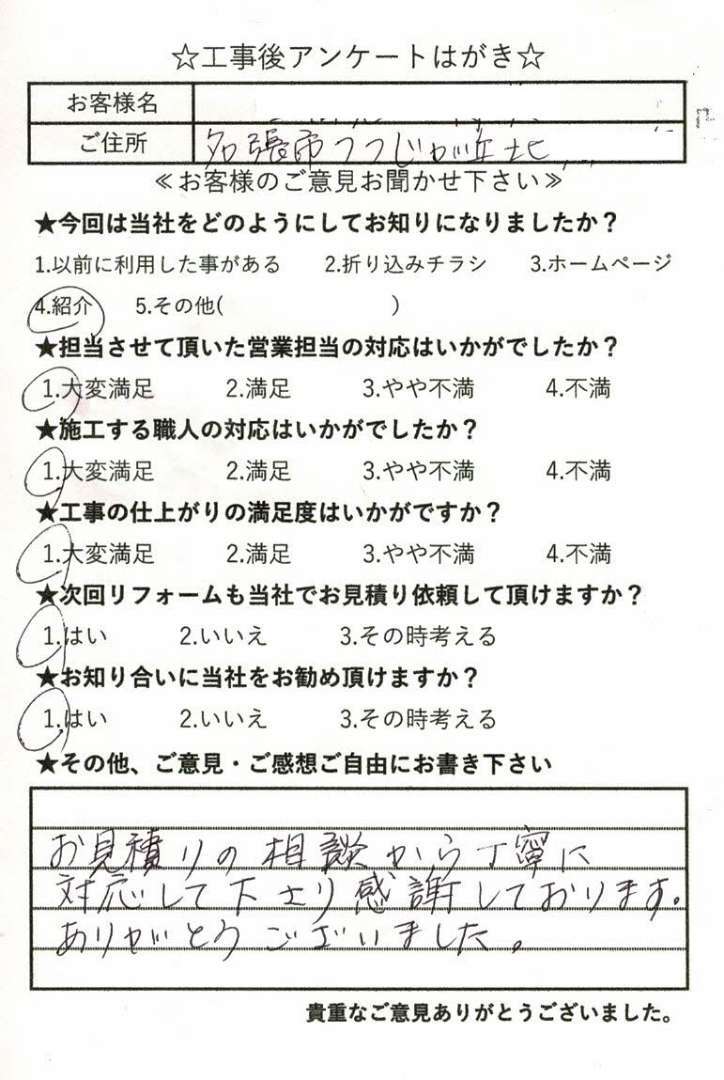 ☆工事後アンケートはがき☆
お客様名
ご住所 名張市つつじが丘北
≪お客様のご意見お聞かせ下さい≫
★今回は当社をどのようにしてお知りになりましたか？
1.以前に利用した事がある 2.折り込みチラシ 3.ホームページ
4.紹介 5.その他( )
★担当させて頂いた営業担当の対応はいかがでしたか？
1.大変満足 2.満足 3.やや不満 4.不満
★施工する職人の対応はいかがでしたか？
1.大変満足 2.満足 3.やや不満 4.不満
★工事の仕上がりの満足度はいかがですか？
1.大変満足 2.満足 3.やや不満 4.不満
★次回リフォームも当社でお見積り依頼して頂けますか？
1.はい 2.いいえ 3.その時考える
★お知り合いに当社をお勧め頂けますか？
1.はい 2.いいえ 3.その時考える
★その他、ご意見・ご感想ご自由にお書き下さい
お見積りの相談から丁寧に
対応して下さり感謝しております。
ありがとうございました。
貴重なご意見ありがとうございました。